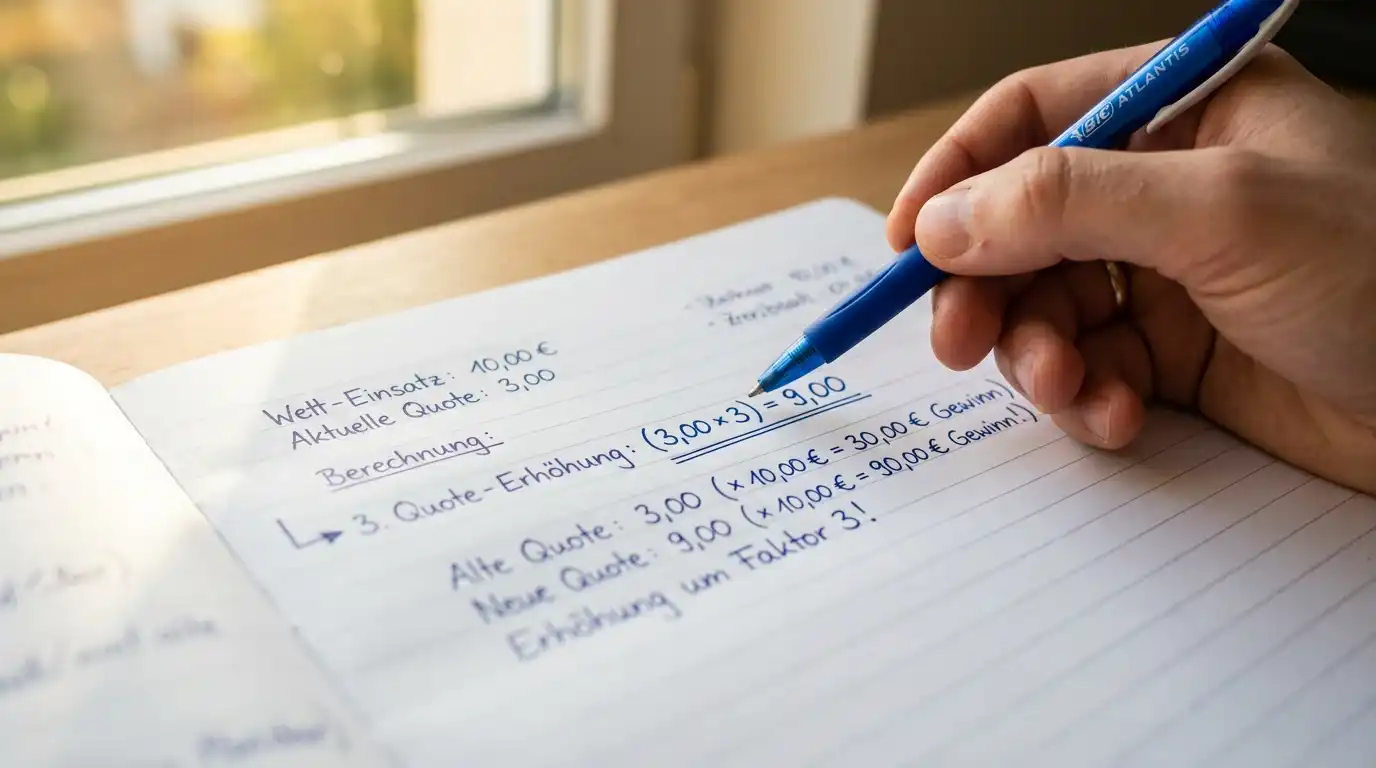 BIC ATLANTIS
Wett-Einsatz: 10,00 €
Aktuelle Quote: 3,00
Berechnung:
↳ 3. Quote-Erhöhung: (3,00 x 3) = 9,00
Alte Quote: 3,00 (x 10,00 € = 30,00 € Gewinn)
Neue Quote: 9,00 (x 10,00 € = 90,00 € Gewinn!)
Erhöhung um Faktor 3!